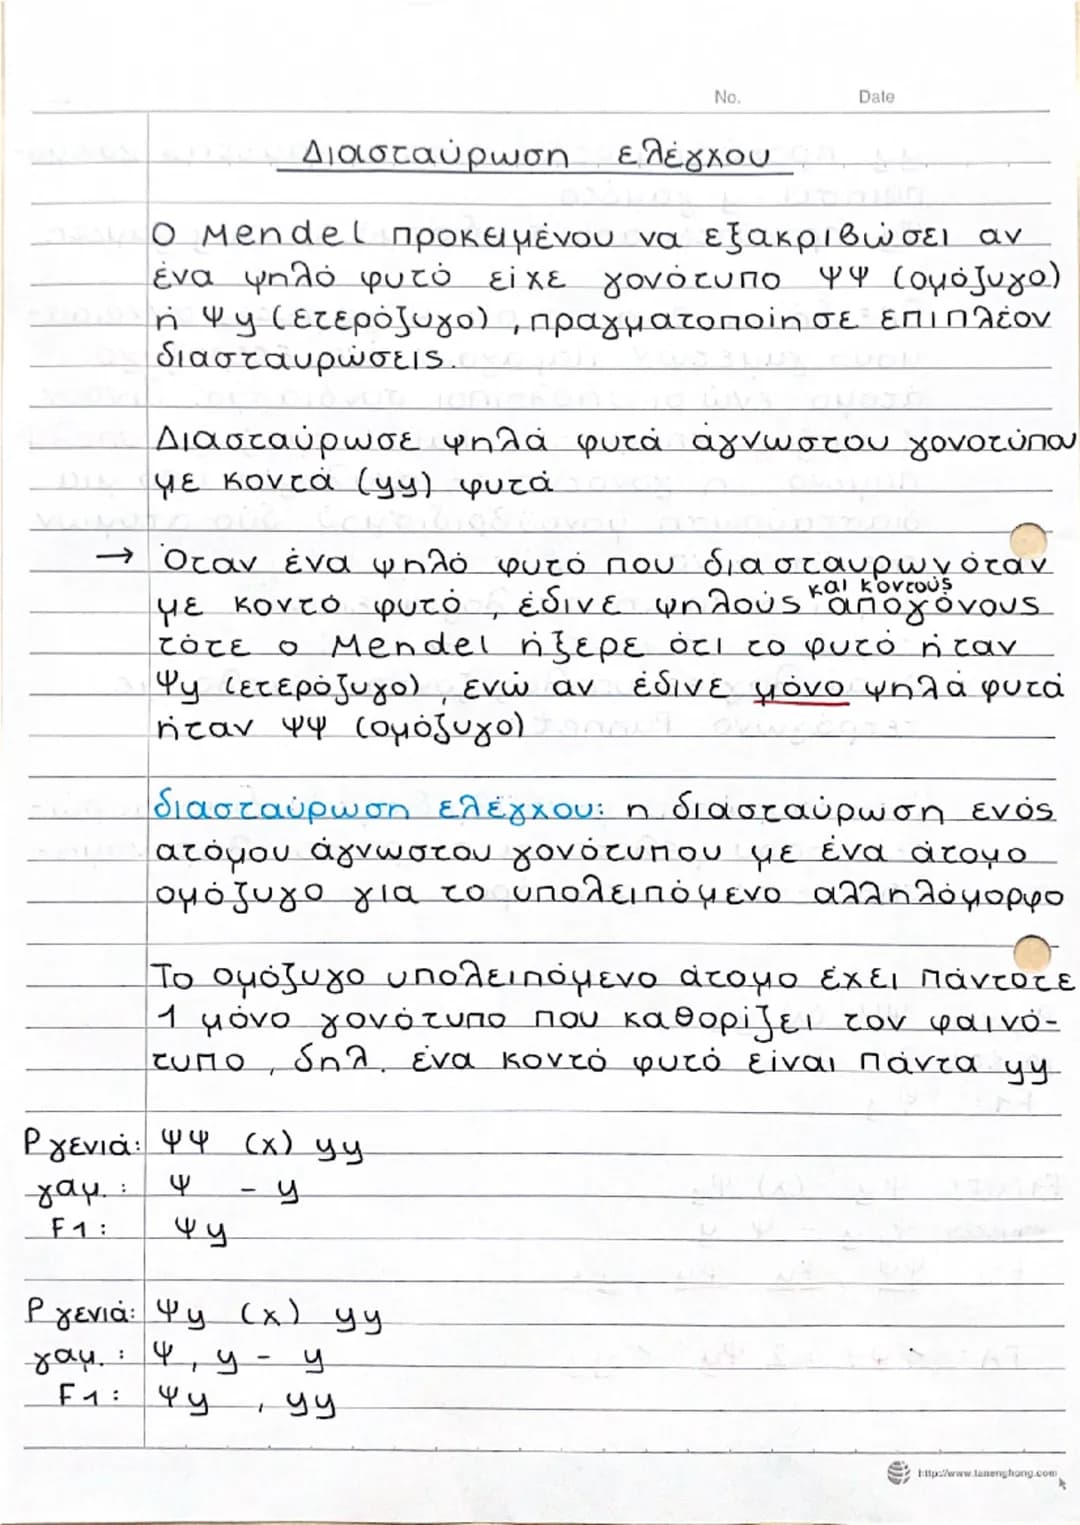 No. Date
Διασταύρωση ελέγχου
Ο Mendel προκειμένου να εξακριβώσει αν
ένα ψηλό φυτό είχε γονότυπο ΨΨ (ομόζυγο)
ή Ψψ (ετερόζυγο), πραγματοποίησε επιπλέον
διασταυρώσεις.
Διασταύρωσε ψηλά φυτά άγνωστου γονοτύπου
με κοντά (ψψ) φυτά
→ Όταν ένα ψηλό φυτό που διασταυρωνόταν
και κοντούς
με κοντό φυτό, έδινε ψηλούς απογόνους
τότε ο Mendel ήξερε ότι το φυτό ήταν
Ψψ (ετερόζυγο), ενώ αν έδινε μόνο ψηλά φυτά
ήταν ΨΨ (ομόζυγο)
διασταύρωση ελέγχου: η διάσταύρωση ενός
ατόμου άγνωστου γονότυπου με ένα άτομο
ομόζυγο για το υπολειπόμενο αλληλόμορφο
Το ομόζυγο υπολειπόμενο άτομο έχει πάντοτε
1 μόνο γονότυπο που καθορίζει τον φαινό-
τυπο, δηλ. ένα κοντό φυτό είναι πάντα ψψ
P γενιά: ΨΨ (x) ψψ
γαμ. : Ψ - ψ
F1: Ψψ
P γενιά: Ψψ (x) ψψ
γαμ. : Ψ, ψ - ψ
F1: Ψψ , ψψ
http://www.tanenghong.com